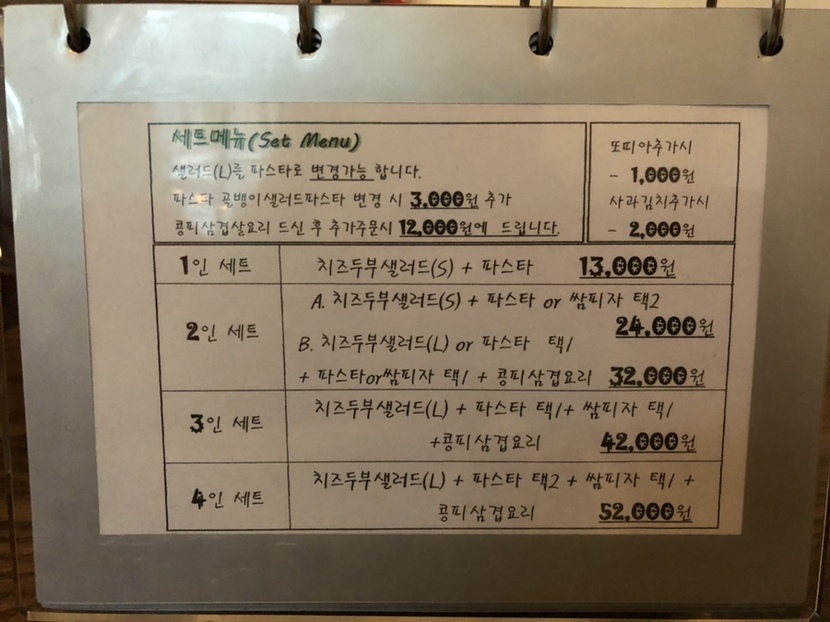 세트메뉴(Set Menu)
샐러드(L)를 파스타로 변경가능 합니다.
파스타 골뱅이샐러드파스타 변경 시 3,000원 추가
콩피삼겹살요리 드신 후 추가주문시 12,000원에 드립니다.
또띠아추가시
- 1,000원
사과김치추가시
- 2,000원
1인 세트 치즈두부샐러드(S) + 파스타 13,000원
2인 세트
A. 치즈두부샐러드(S) + 파스타 or 쌈피자 택2
24,000원
B. 치즈두부샐러드(L) or 파스타 택1
+ 파스타or쌈피자 택1 + 콩피삼겹요리 32,000원
3인 세트
치즈두부샐러드(L) + 파스타 택1+ 쌈피자 택1
+콩피삼겹요리 42,000원
4인 세트
치즈두부샐러드(L) + 파스타 택2 + 쌈피자 택1 +
콩피삼겹요리 52,000원